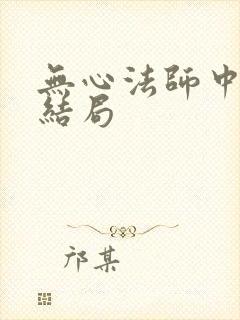 無心法師中
結局
邝某